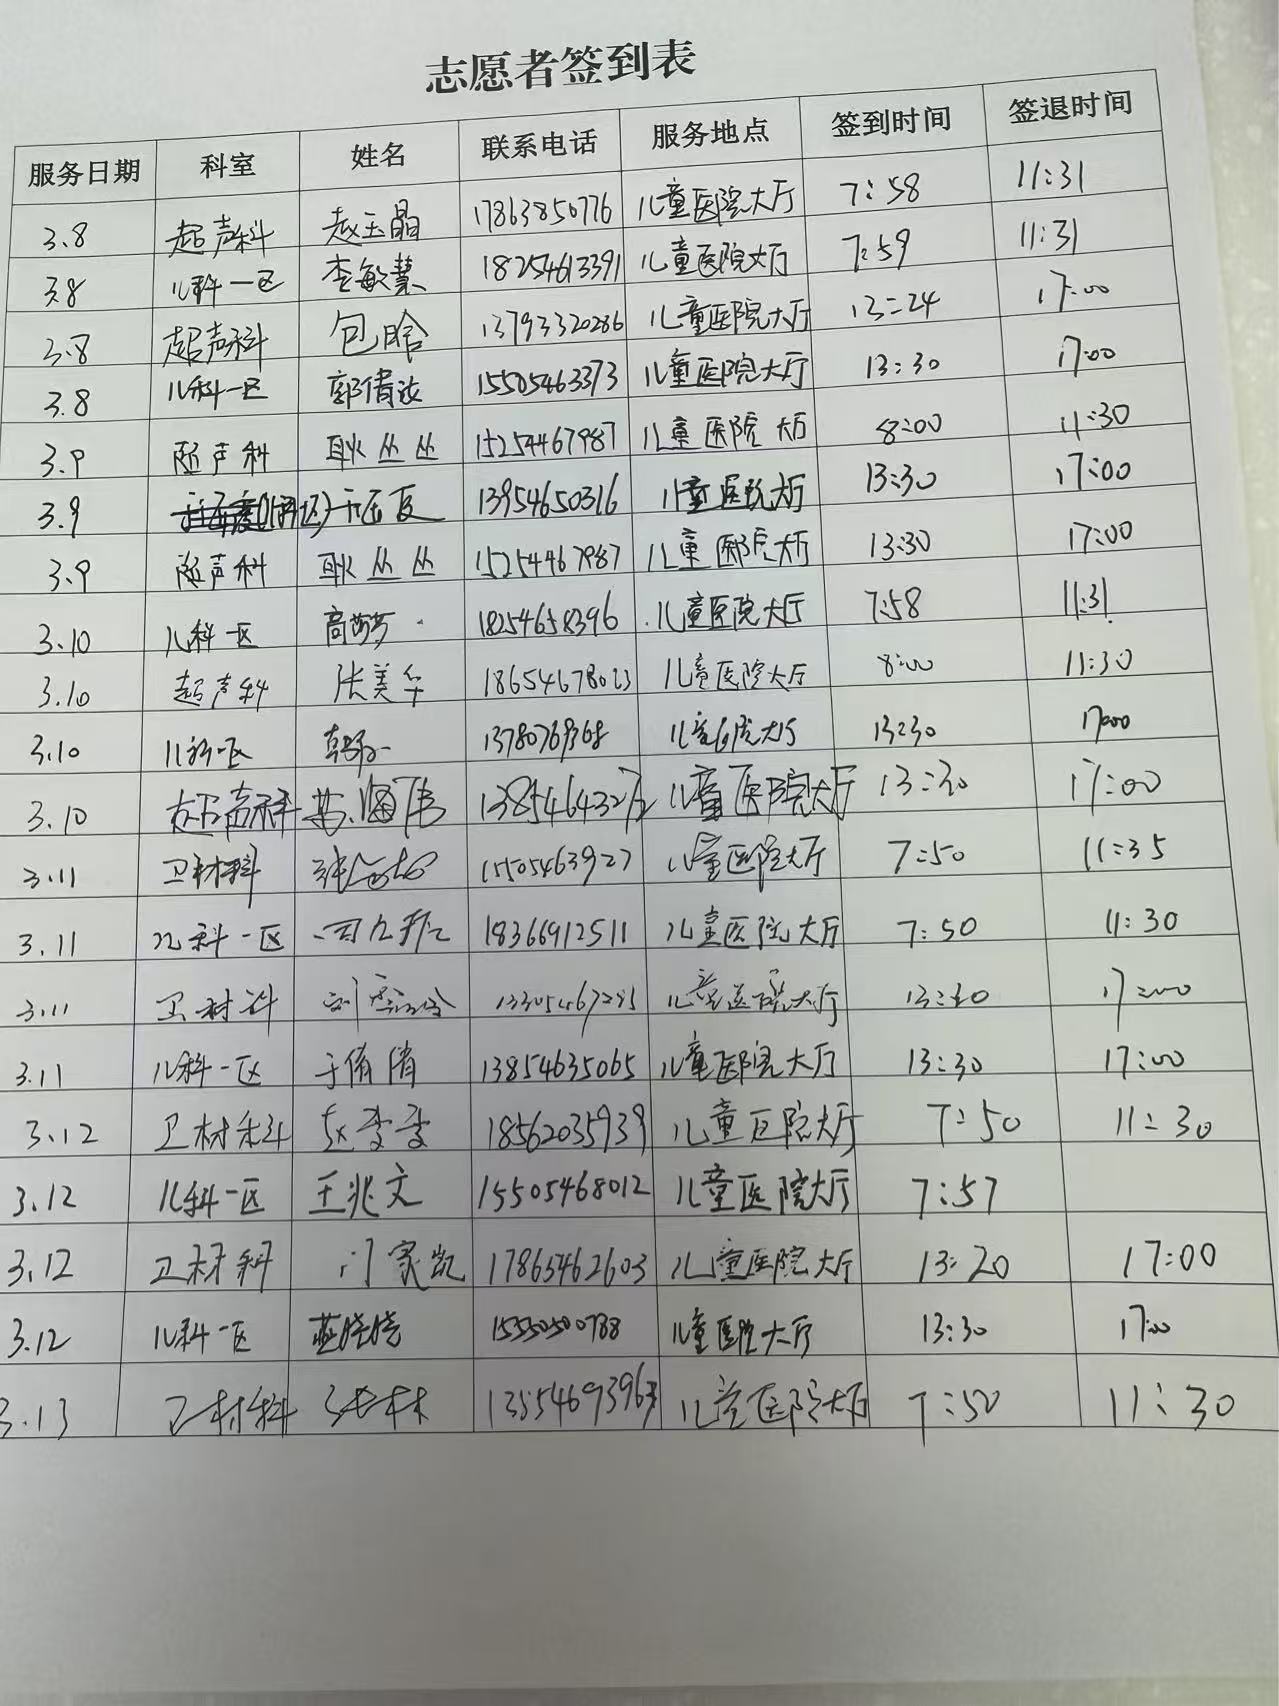 志愿者签到表
服务日期 科室 姓名 联系电话 服务地点 签到时间 签退时间
3.8 超声科 赵玉晶 17863850776 儿童医院大厅 7:58 11:31
3.8 儿科一区 李敏慧 18254613391 儿童医院大厅 7:59 11:31
3.8 超声科 包晗 13793320286 儿童医院大厅 13:24 17:00
3.8 儿科一区 郭倩 15505463373 儿童医院大厅 13:30 17:00
3.9 超声科 耿丛丛 15254467987 儿童医院大厅 8:00 11:30
3.9 13954650316 儿童医院大厅 13:30 17:00
3.9 超声科 耿丛丛 15254467987 儿童医院大厅 13:30 17:00
3.10 儿科一区 高 18254658396 儿童医院大厅 7:58 11:31
3.10 超声科 张美华 18654678023 儿童医院大厅 8:00 11:30
3.10 儿科一区 儿童医院大厅 13:30 17:00
3.10 超声科 海伟 儿童医院大厅 13:30 17:00
3.11 卫材科 15505463927 儿童医院大厅 7:50 11:35
3.11 儿科一区 18366912511 儿童医院大厅 7:50 11:30
3.11 卫材科 刘 儿童医院大厅 13:30 17:00
3.11 儿科一区 于倩倩 13854635065 儿童医院大厅 13:30 17:00
3.12 卫材科 赵 18562035939 儿童医院大厅 7:50 11:30
3.12 儿科一区 王兆文 15505468012 儿童医院大厅 7:57
3.12 卫材科 门家凯 17865462603 儿童医院大厅 13:20 17:00
3.12 儿科一区 晓晓 15550500788 儿童医院大厅 13:30 17:00
3.13 卫材科 林 儿童医院大厅 7:50 11:30